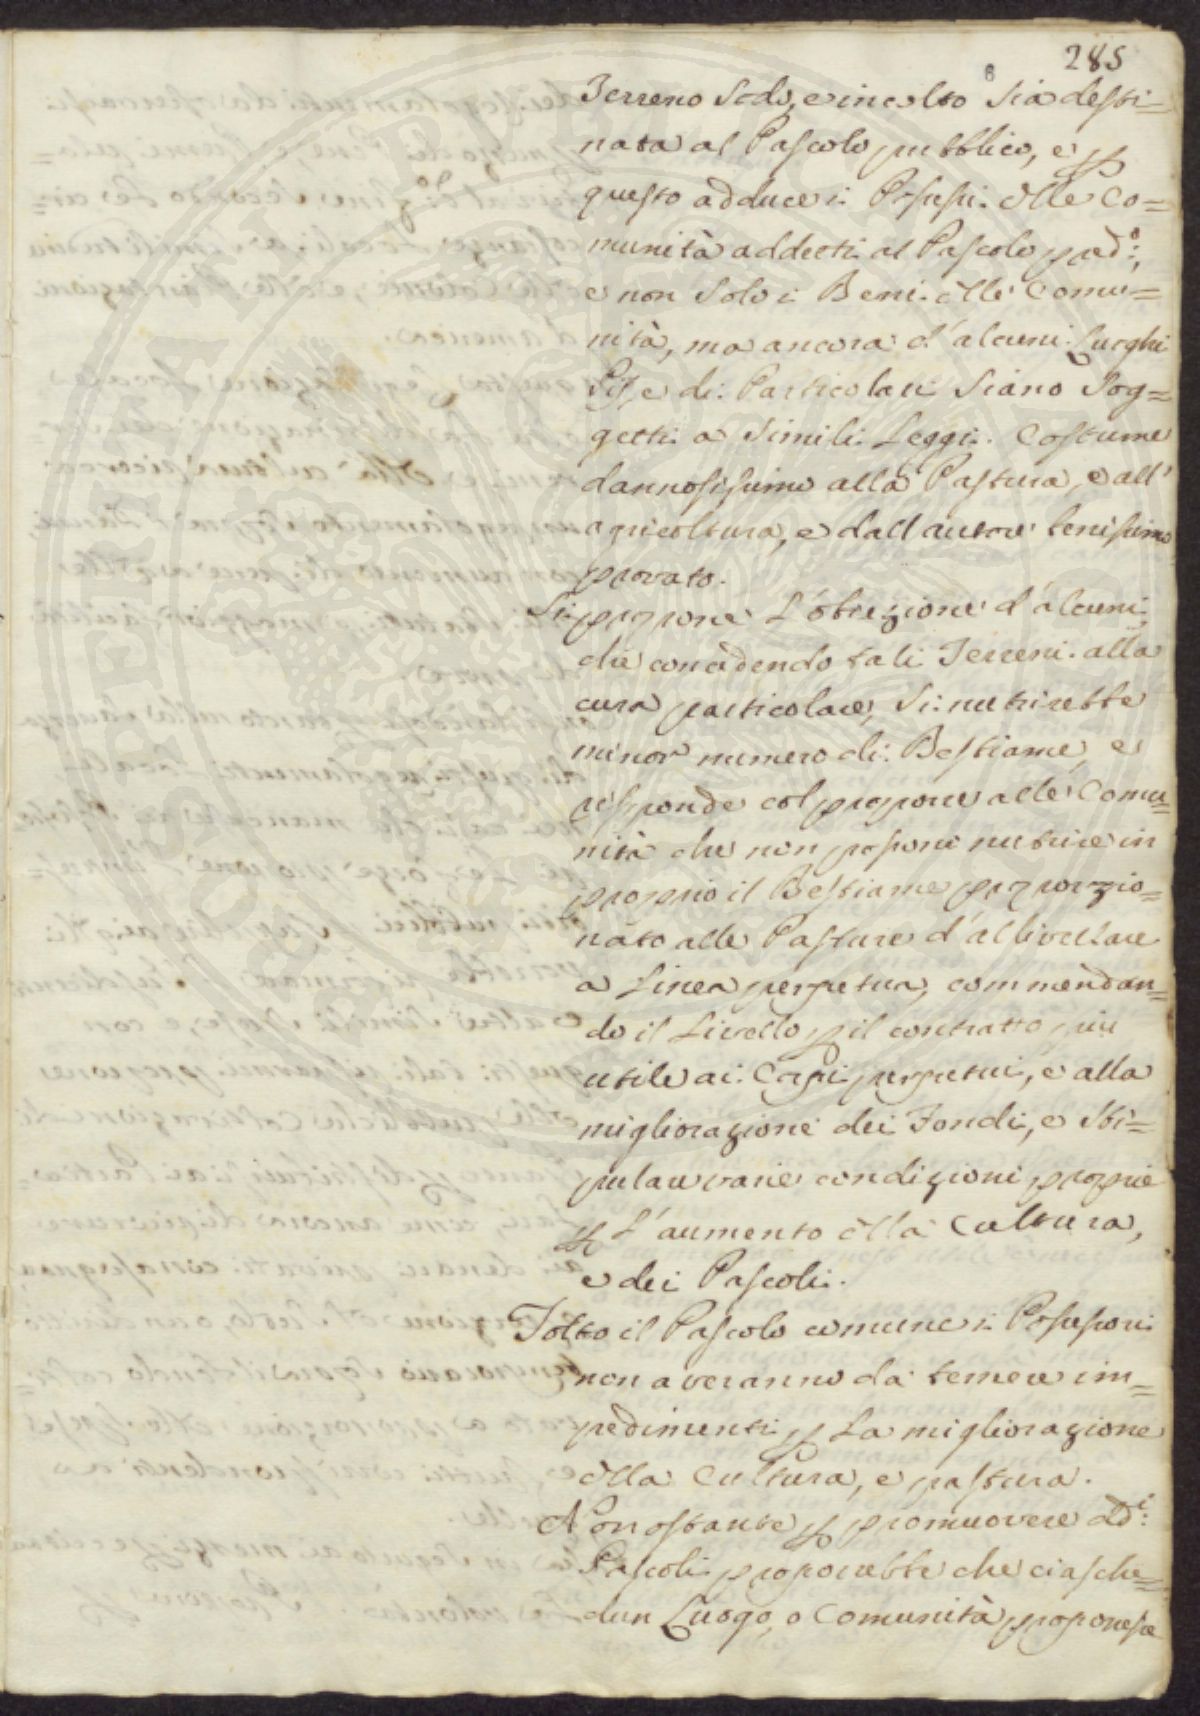 285
Terreno Sodo, e incolto Sia desti=
nata al Pascolo pubblico, e p
questo adduce i Possessi dlle Co=
munità addetti al Pascolo pred:°,
e non Solo i Beni dlle Comu=
nità, ma ancora d'alcuni Luoghi
Pij, e di Particolari Siano Sog=
getti a Simili Leggi. Costume
dannosissimo alla Pastura, e all'
agricoltura, e dall autore benissimo
provato.
Si propone L'obiezione d'alcuni
che concedendo tali Terreni alla
cura particolare, Si nutrirebbe
minor numero di Bestiame, e
risponde col proporre alle Comu=
nità che non possono nutrire in
proprio il Bestiame proporzio=
nato alle Pasture d'allivellare
a Linea perpetua, commendan=
do il Livello p il contratto piu
utile ai Corpi perpetui, e alla
migliorazione dei Fondi, e Sti=
pulare varie condizioni proprie
p L'aumento dlla Cultura,
e dei Pascoli.
Tolto il Pascolo comune i Possessori
non averanno da temere im=
pedimenti p La migliorazione
dlla Cultura, e pastura.
Nonostante p promuovere dd:i
Pascoli proporrebbe che ciasche=
dun Luogo, o Comunità proponesse